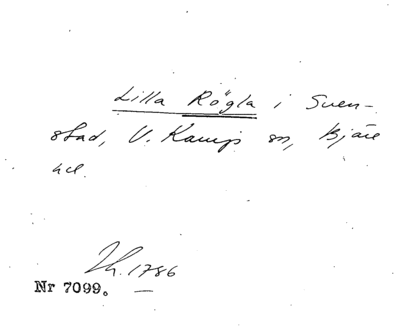 Lilla Rögla i Sven-
stad, V. Karup sn, Bjäre
hd.
Lh. 1786
Nr 7099.